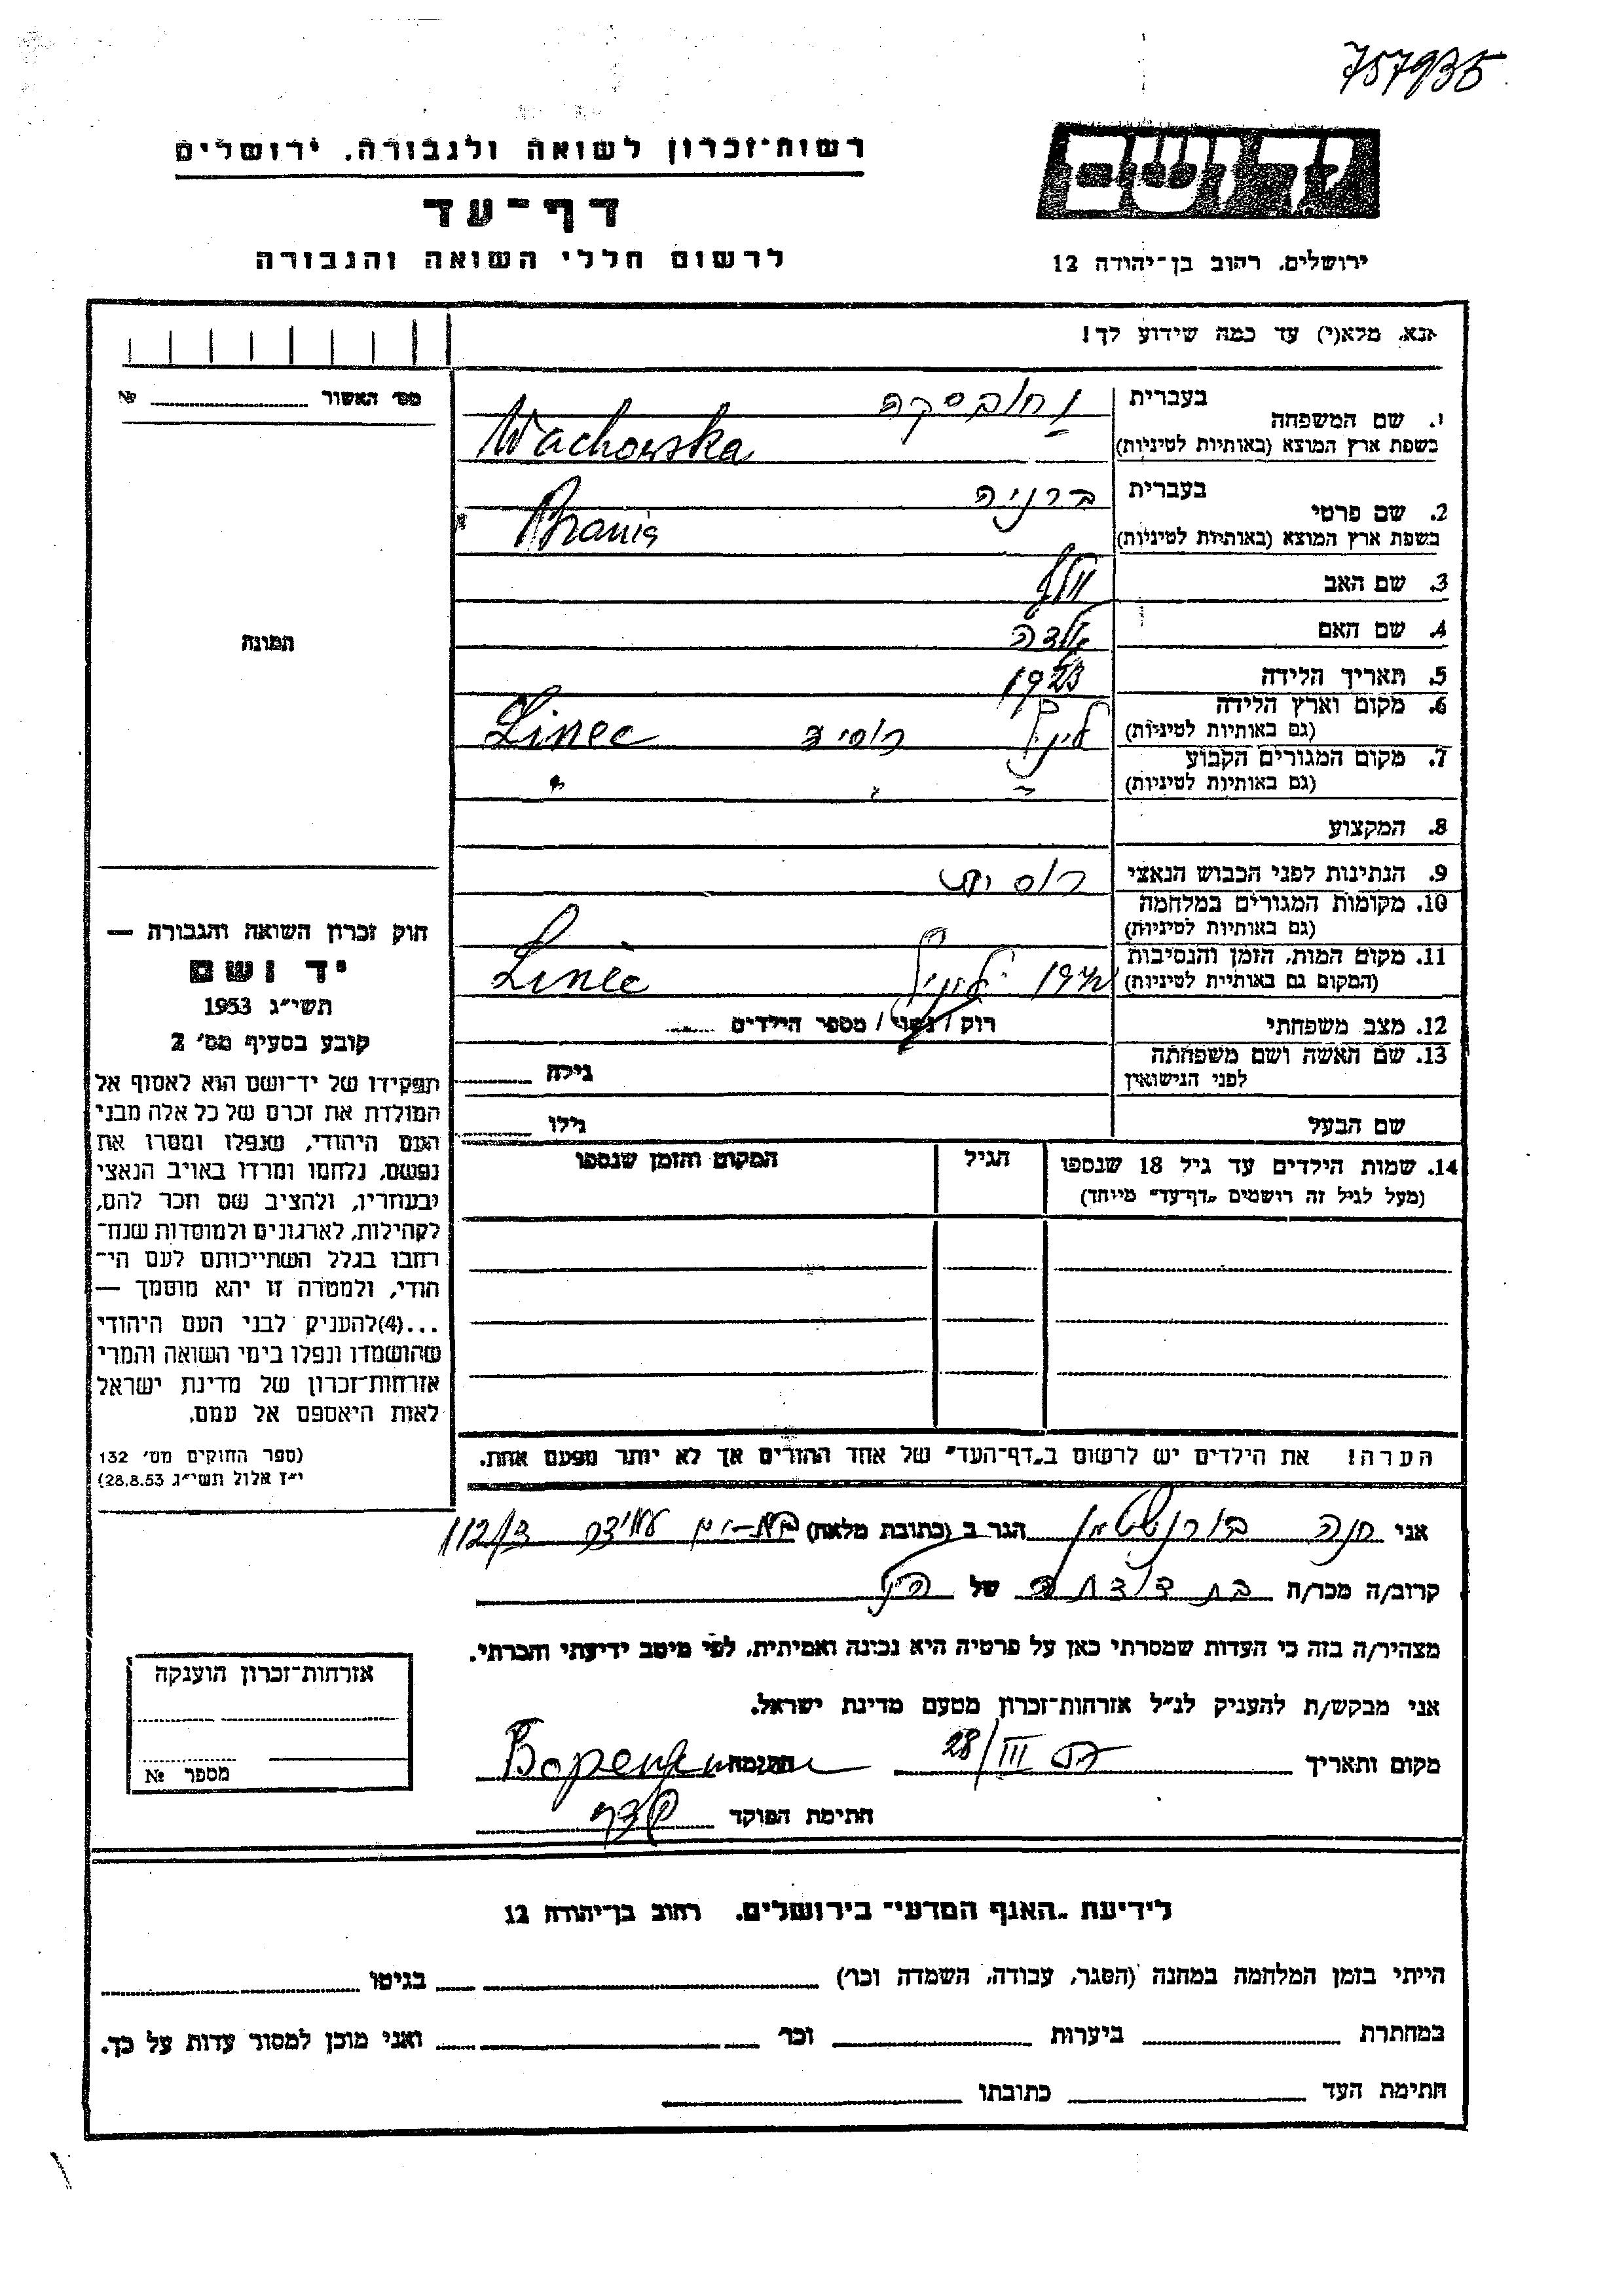 757935
רשות־זכרון לשואה ולגבורה, ירושלים
דף־עד
לרשום חללי השואה והגבורה
יד ושם
ירושלים, רחוב בן־יהודה 12
נא, מלא(י) עד כמה שידוע לך!
מס׳ האשור № 
1. שם המשפחה בעברית וחובסקה
בשפת ארץ המוצא (באותיות לטיניות) Wachowska
2. שם פרטי בעברית ברניה
בשפת ארץ המוצא (באותיות לטיניות) Brania
3. שם האב וולף
4. שם האם
5. תאריך הלידה 1923
6. מקום וארץ הלידה רוסיה Linec
(גם באותיות לטיניות)
7. מקום המגורים הקבוע " " "
(גם באותיות לטיניות)
8. המקצוע
9. הנתינות לפני הכבוש הנאצי רוסית
10. מקומות המגורים במלחמה
(גם באותיות לטיניות)
11. מקום המות, הזמן והנסיבות Linec
(המקום גם באותיות לטיניות)
12. מצב משפחתי רוק / נשוי / מספר הילדים
13. שם האשה ושם משפחתה גילה
לפני הנישואין
שם הבעל גילו
14. שמות הילדים עד גיל 18 שנספו הגיל המקום והזמן שנספו
(מעל לגיל זה רושמים „דף־עד" מיוחד)
הערה! את הילדים יש לרשום ב„דף־העד" של אחד ההורים אך לא יותר מפעם אחת.
התמונה
חוק זכרון השואה והגבורה —
יד ושם
תשי״ג 1953
קובע בסעיף מס׳ 2
תפקידו של יד־ושם הוא לאסוף אל
המולדת את זכרם של כל אלה מבני
העם היהודי, שנפלו ומסרו את
נפשם, נלחמו ומרדו באויב הנאצי
ובעוזריו, ולהציב שם וזכר להם,
לקהילות, לארגונים ולמוסדות שנח־
רבו בגלל השתייכותם לעם הי־
הודי, ולמטרה זו יהא מוסמך —
...(4)להעניק לבני העם היהודי
שהושמדו ונפלו בימי השואה והמרי
אזרחות־זכרון של מדינת ישראל
לאות היאספם אל עמם.
(ספר החוקים מס׳ 132
י״ז אלול תשי״ג 28.8.53)
אני חנה בורנשטיין הגר ב (כתובת מלאה) בת-ים 112/
קרוב/ה מכר/ה בת דודתה של הנ״ל
מצהיר/ה בזה כי העדות שמסרתי כאן על פרטיה היא נכונה ואמיתית, לפי מיטב ידיעתי והכרתי.
אני מבקש/ת להעניק לנ״ל אזרחות־זכרון מטעם מדינת ישראל.
מקום ותאריך 28/III חתימה
חתימת הפוקד
אזרחות־זכרון הוענקה
מספר №
לידיעת „האגף המדעי" בירושלים, רחוב בן־יהודה 12
הייתי בזמן המלחמה במחנה (הסגר, עבודה, השמדה וכו׳) בגיטו
במחתרת ביערות וכו׳ ואני מוכן למסור עדות על כך.
חתימת העד כתובתו